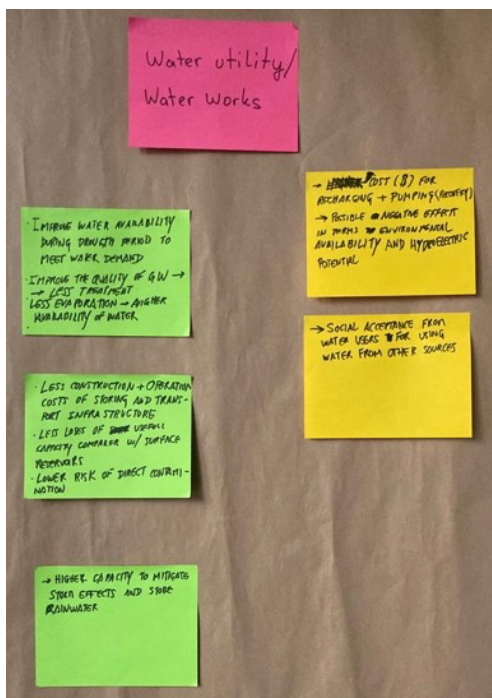 Water utility/
Water Works
· IMPROVE WATER AVAILABILITY
DURING DROUGTH PERIOD TO
MEET WATER DEMAND
· IMPROVE THE QUALITY OF GW →
→ LESS TREATMENT
LESS EVAPORATION → HIGHER
AVAILABILITY OF WATER
· LESS CONSTRUCTION + OPERATION
COSTS OF STORING AND TRANS-
PORT INFRASTRUCTURE
· LESS LOSES OF USEFULL
CAPACITY COMPARED W/ SURFACE
RESERVOIRS
· LOWER RISK OF DIRECT CONTAMI-
NATION
→ HIGHER CAPACITY TO MITIGATE
STORM EFFECTS AND STORE
RAINWATER
→ COST ($) FOR
RECHARGING + PUMPING (RECOVERY)
→ POSSIBLE NEGATIVE EFFECT
IN TERMS ENVIRONMENTAL
AVAILABILITY AND HYDROELECTRIC
POTENTIAL
→ SOCIAL ACCEPTANCE FROM
WATER USERS FOR USING
WATER FROM OTHER SOURCES